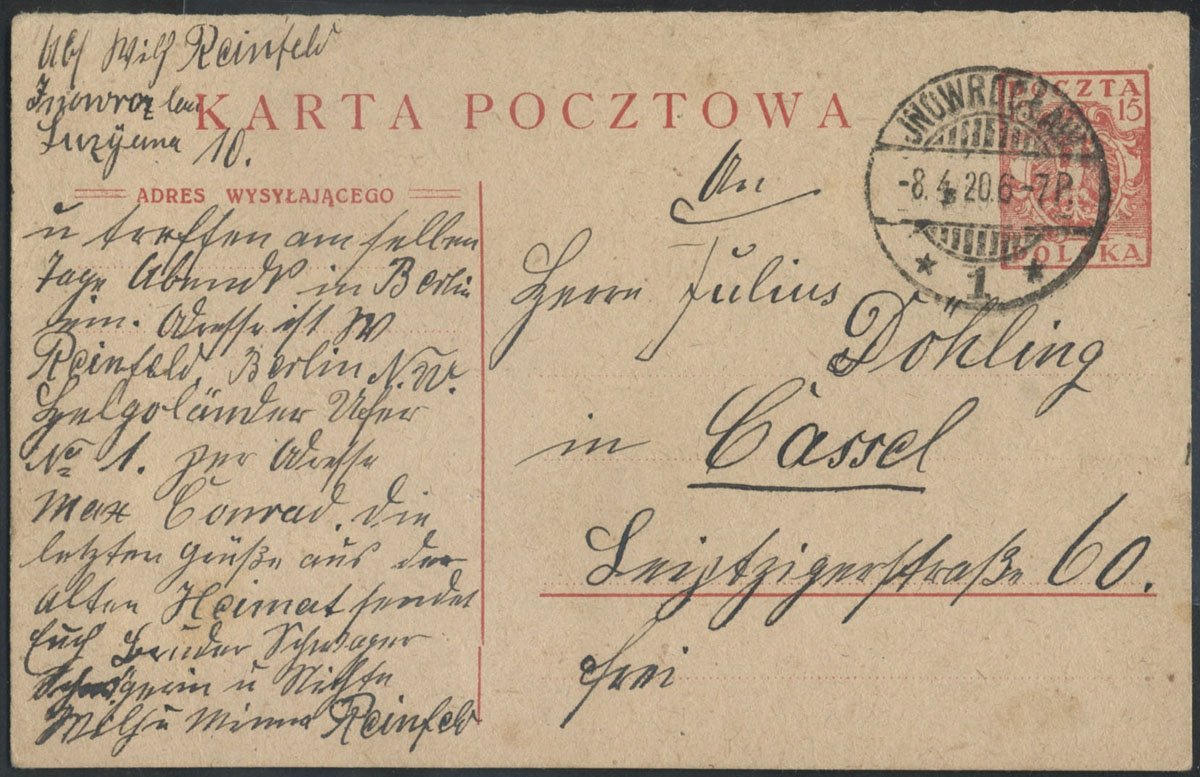 Abs Wilh Reinfeld
Inowrozlaw
10.
KARTA POCZTOWA
ADRES WYSYŁAJĄCEGO
POCZTA
15
POLSKA
JNOWROCŁAW
-8.4.20.6-7P.
* 1 *
An
Herrn Julius
Döhling
in Cassel
Leiptzigerstraße 60.
frei
u treffen am selben
Tage Abends in Berlin
ein. Adresse ist W
Reinfeld, Berlin N.W.
Helgoländer Ufer
No 1. per Adresse
Max Conrad. Die
letzten Grüße aus der
alten Heimat sendet
Euch Bruder Schwager
Schwägerin u Nichte
Wilh u Minna Reinfeld